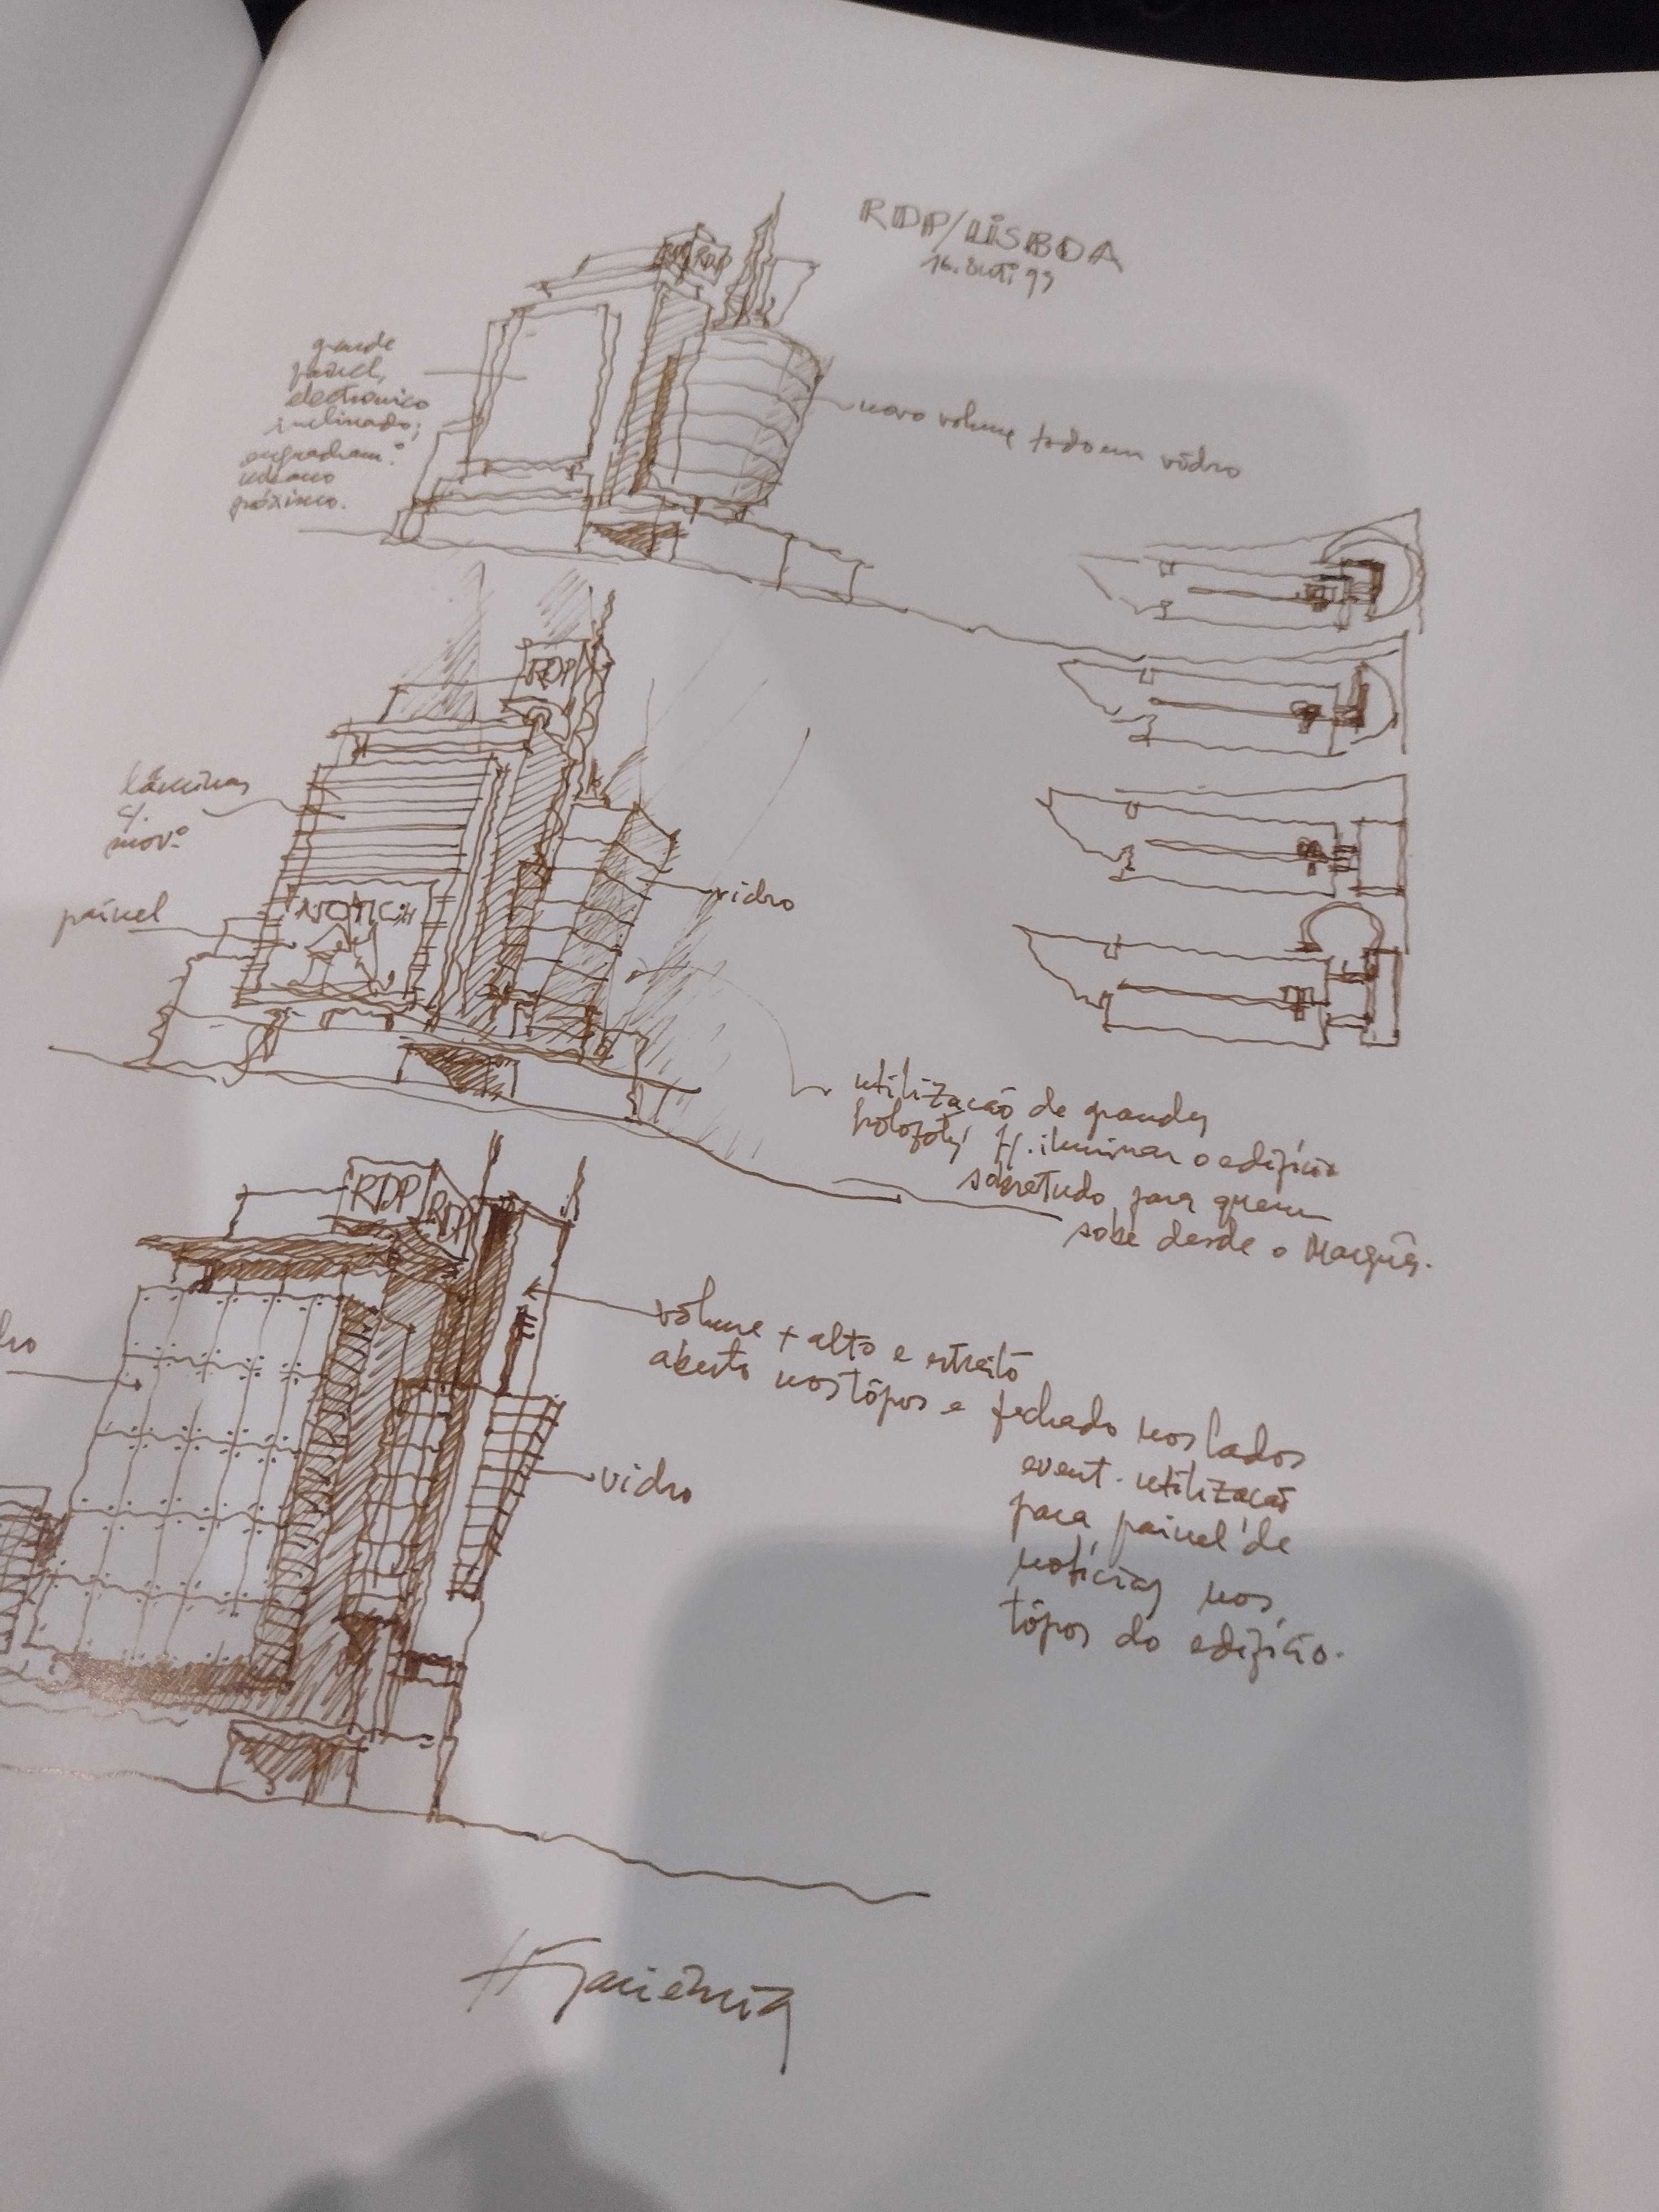 RDP/LISBOA
16.Out.99
RDP
grande
painel
electronico
inclinado;
próximo.
novo volume todo em vidro
RDP
lâminas
c/.
mov.º
painel
NOTICIA
vidro
utilização de grandes
holofotes p/. iluminar o edifício
sobretudo para quem
sobe desde o Marquês.
RDP RDP
volume + alto e estreito
aberto nos tôpos e fechado nos lados
event. utilização
para painel de
notícias nos
tôpos do edifício.
vidro